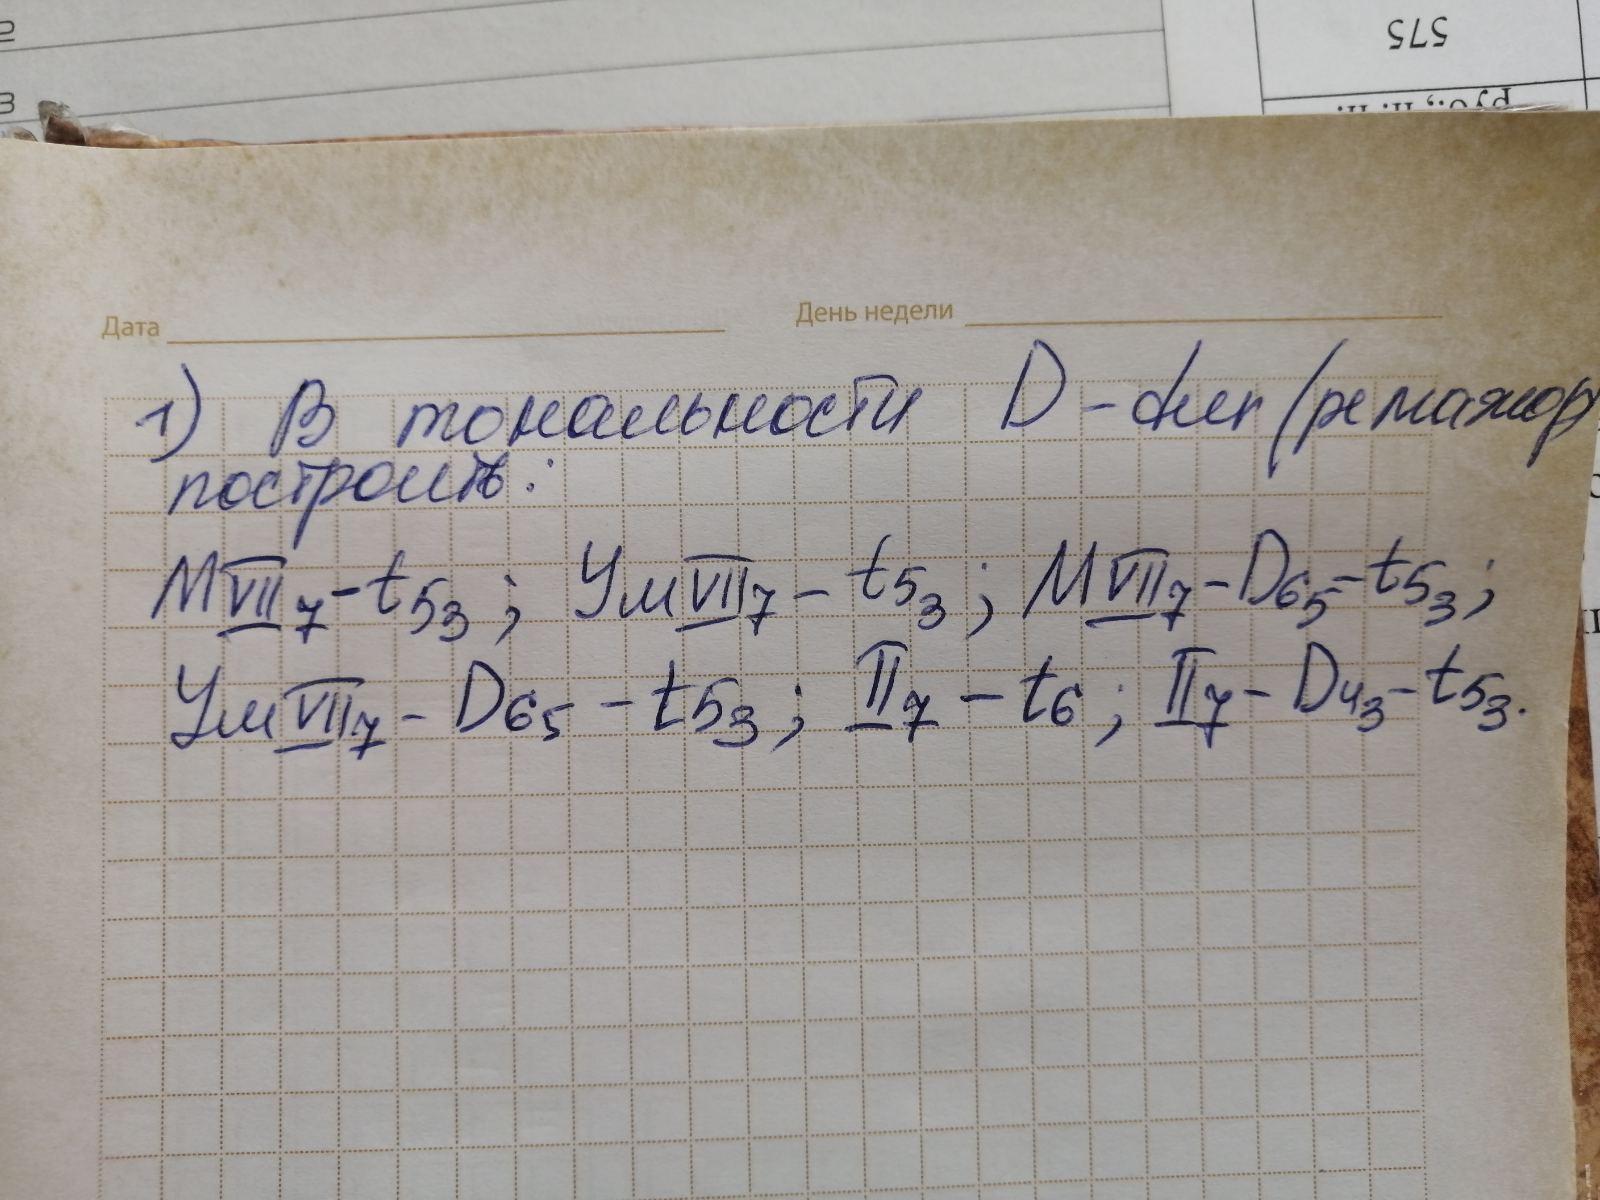 2
3
575
руб., п. п.
Дата
День недели
1) В тональности D-dur (ре мажор)
построить:
МVII7 - t53; УмVII7 - t53; МVII7 - D65 - t53;
УмVII7 - D65 - t53; II7 - t6; II7 - D43 - t53.